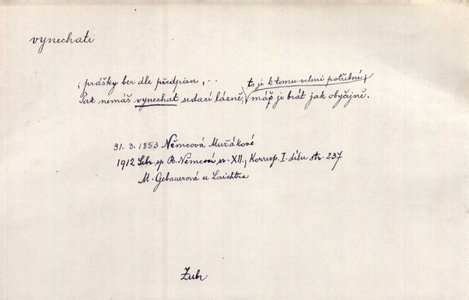 vynechati
; prášky ber dle předpisu, . . to je k tomu velmi potřebné;
Pak nemáš vynechat sedací lázně, máš je brát jak obyčejně.
31. 3. 1853 Němcová Muřákové
1912 Sebr. sp. B. Němcové sv. XII., Korresp. I. dílu str. 237
M. Gebauerová u Laichtra
Zubr